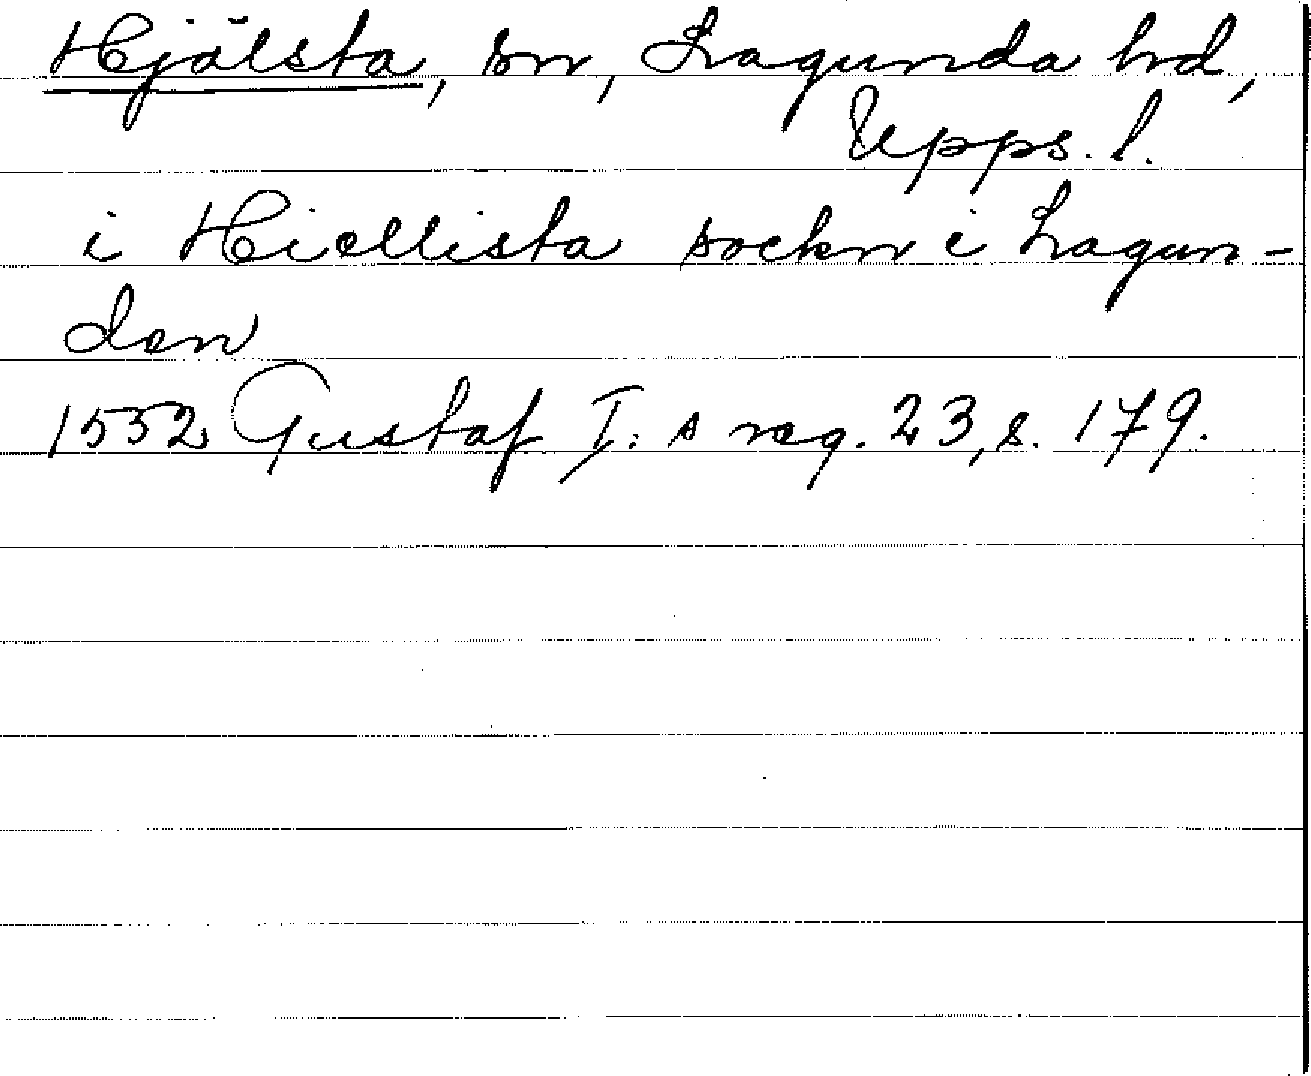 Hjälsta, sn, Lagunda hd,
Upps. l.
i Hiællista sockn i Lagun-
den
1552 Gustaf I:s reg. 23, s. 179.